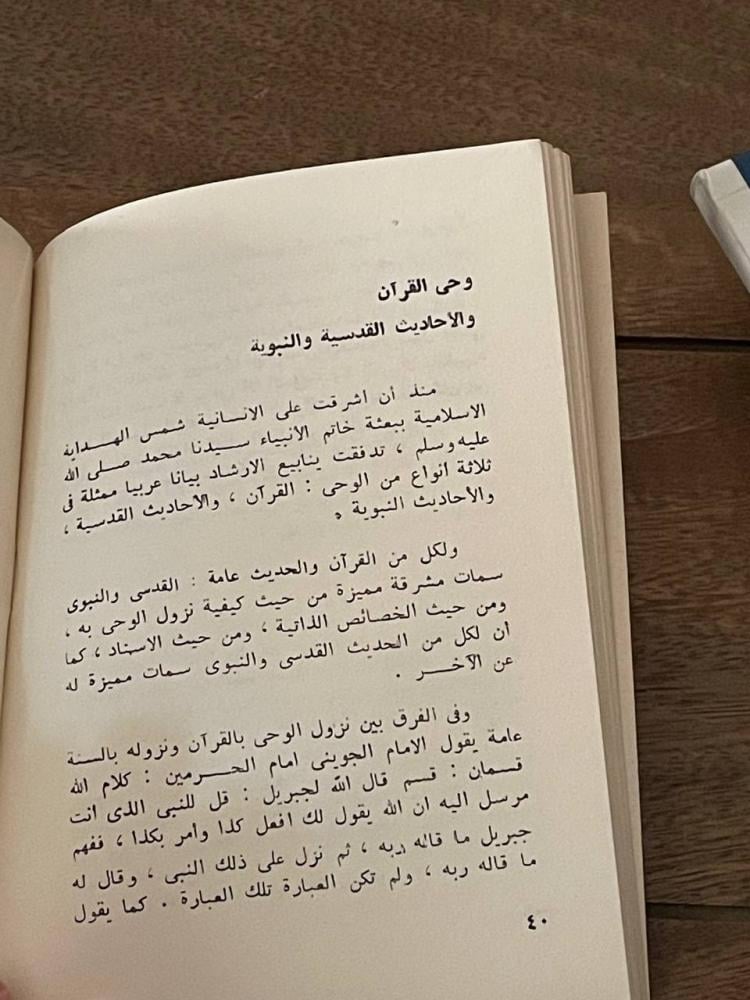 وحى القرآن
والأحاديث القدسية والنبوية
منذ أن اشرقت على الانسانية شمس الهداية
الاسلامية ببعثة خاتم الأنبياء سيدنا محمد صلى الله
عليه وسلم ، تدفقت ينابيع الارشاد بيانا عربيا ممثلة فى
ثلاثة انواع من الوحى : القرآن ، والأحاديث القدسية ،
والأحاديث النبوية .
ولكل من القرآن والحديث عامة : القدسى والنبوى
سمات مشرقة مميزة من حيث كيفية نزول الوحى به ،
ومن حيث الخصائص الذاتية ، ومن حيث الاسناد ، كما
أن لكل من الحديث القدسى والنبوى سمات مميزة له
عن الآخر .
وفى الفرق بين نزول الوحى بالقرآن ونزوله بالسنة
عامة يقول الامام الجوينى امام الحرمين : كلام الله
قسمان : قسم قال الله لجبريل : قل للنبى الذى انت
مرسل اليه ان الله يقول لك افعل كذا وأمر بكذا ، ففهم
جبريل ما قاله ربه ، ثم نزل على ذلك النبى ، وقال له
ما قاله ربه ، ولم تكن العبارة تلك العبارة . كما يقول
٤٠